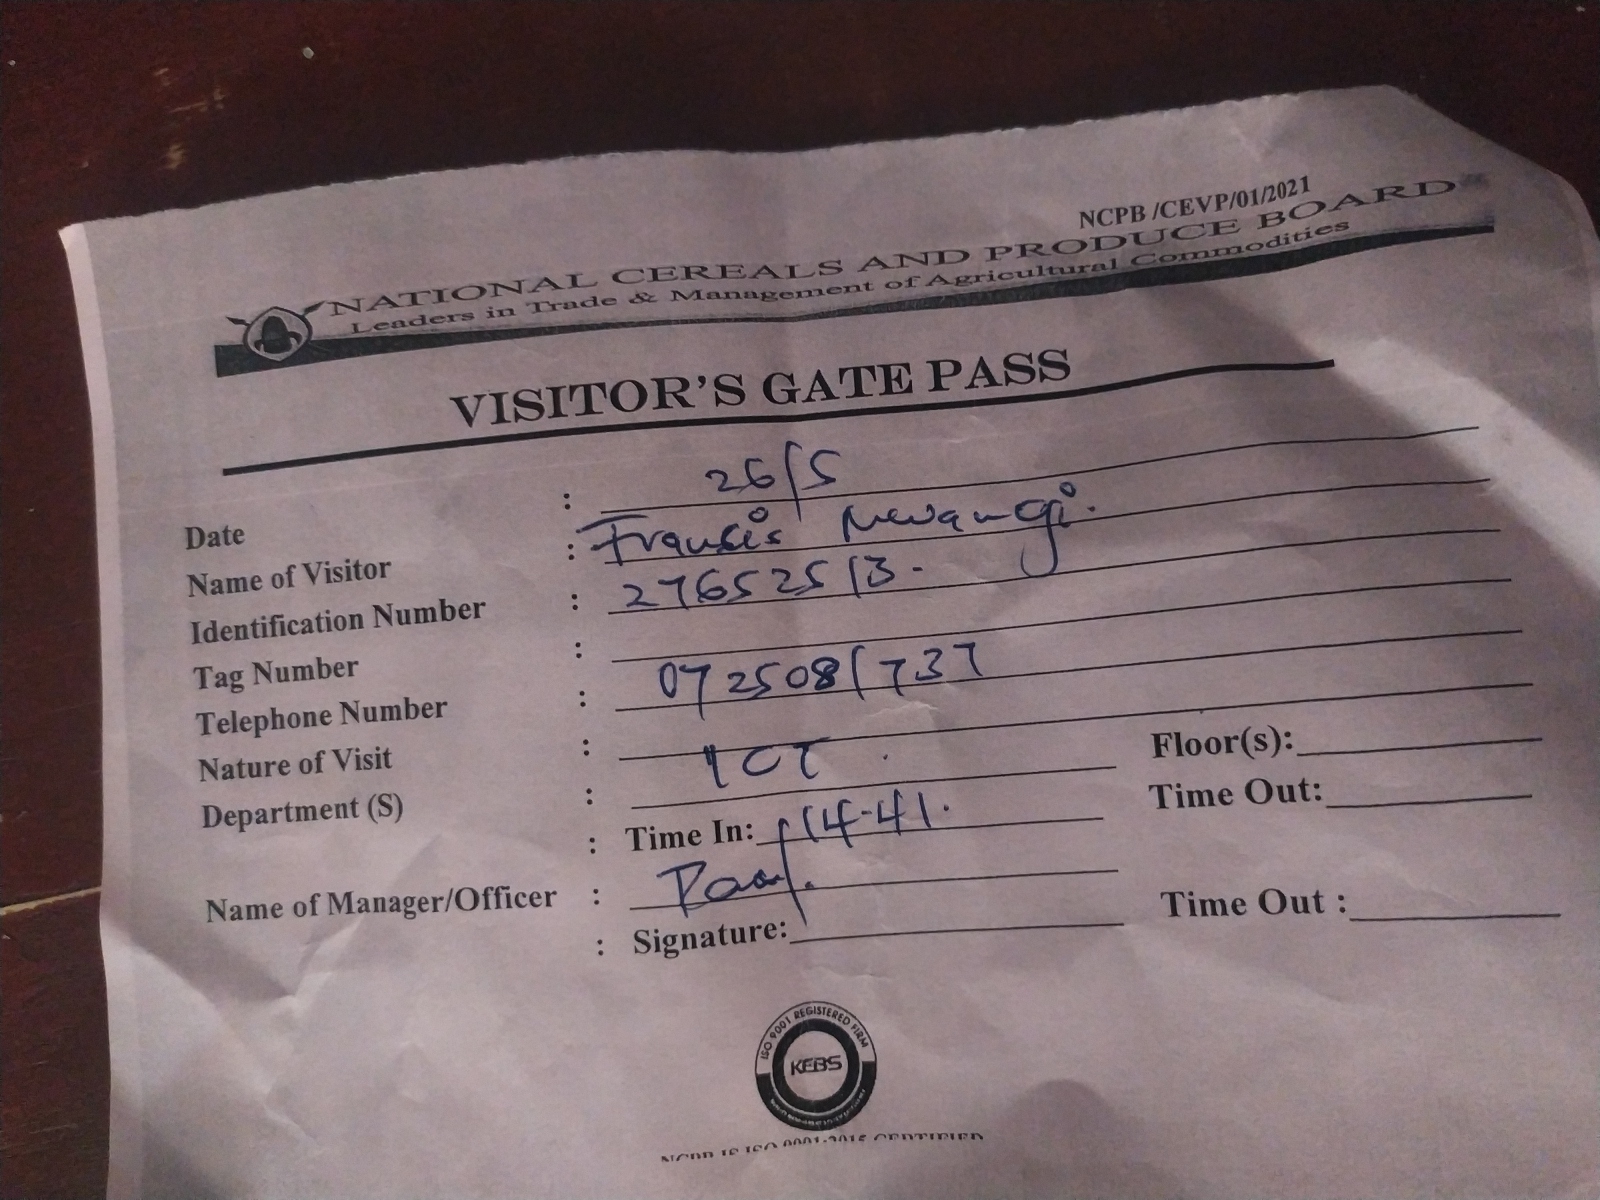 NCPB /CEVP/01/2021
NATIONAL CEREALS AND PRODUCE BOARD
Leaders in Trade & Management of Agricultural Commodities
VISITOR'S GATE PASS
Date : 26/5
Name of Visitor : Francis
Identification Number : 27652513.
Tag Number :
Telephone Number : 0725081737
Nature of Visit : ICT
Department (S) : Floor(s):
: Time In: 14-41. Time Out:
Name of Manager/Officer :
: Signature: Time Out :
ISO 9001 REGISTERED FIRM
KEBS